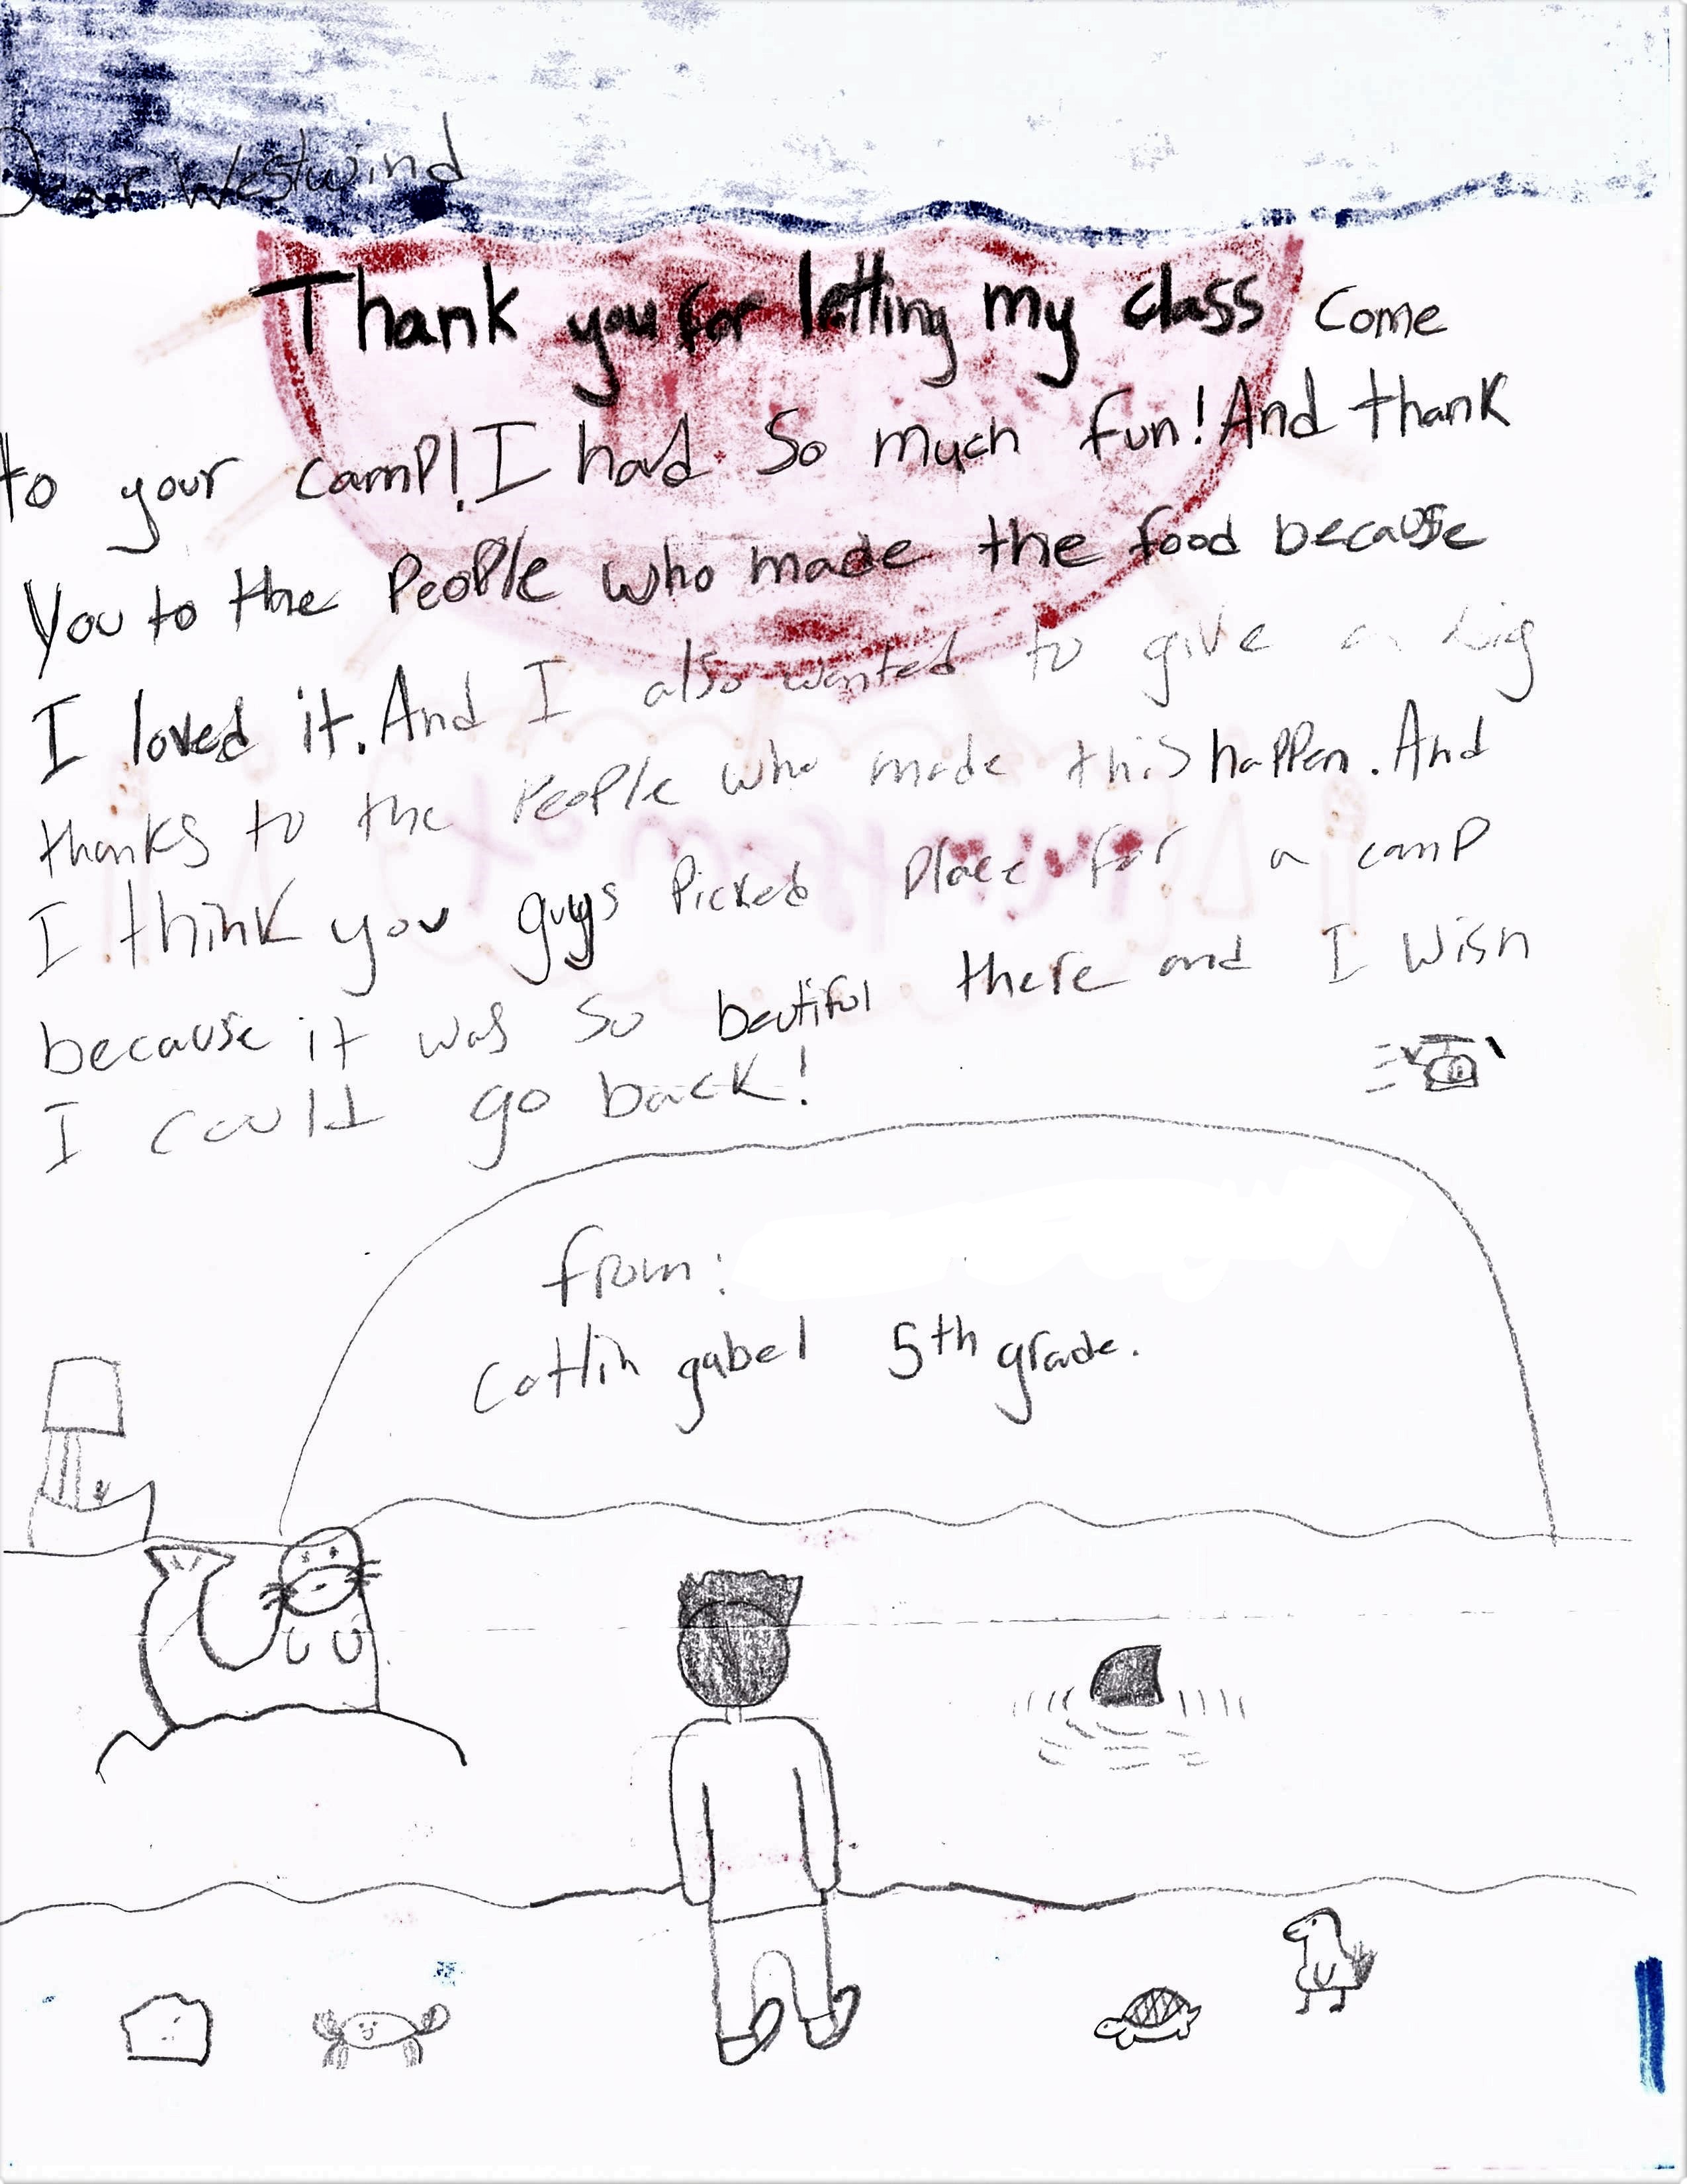 Dear Westwind
Thank you for letting my class come
to your camp! I had so much fun! And thank
you to the people who made the food because
I loved it. And I also wanted to give a big
thanks to the people who made this happen. And
I think you guys picked place for a camp
because it was so beutiful there and I wish
I could go back!
from:
Catlin gabel 5th grade.